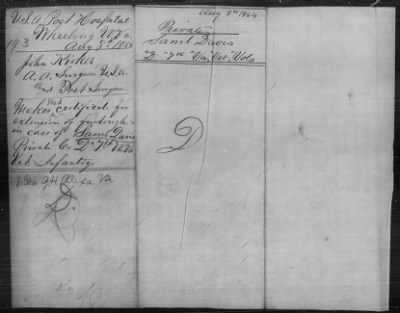 U.S.A. Post Hospital
Wheeling W Va
193 Aug 8th 1864
John Kirker
A. A. Surgeon U.S.A.
and Post Surgeon
certificate for
extension of furlough
in case of Saml Davis
Private Co. D 7th W Va
Vet Infantry
D
Aug 8th 1864
Private
Saml Davis
D 7th Va Vet Vols
D